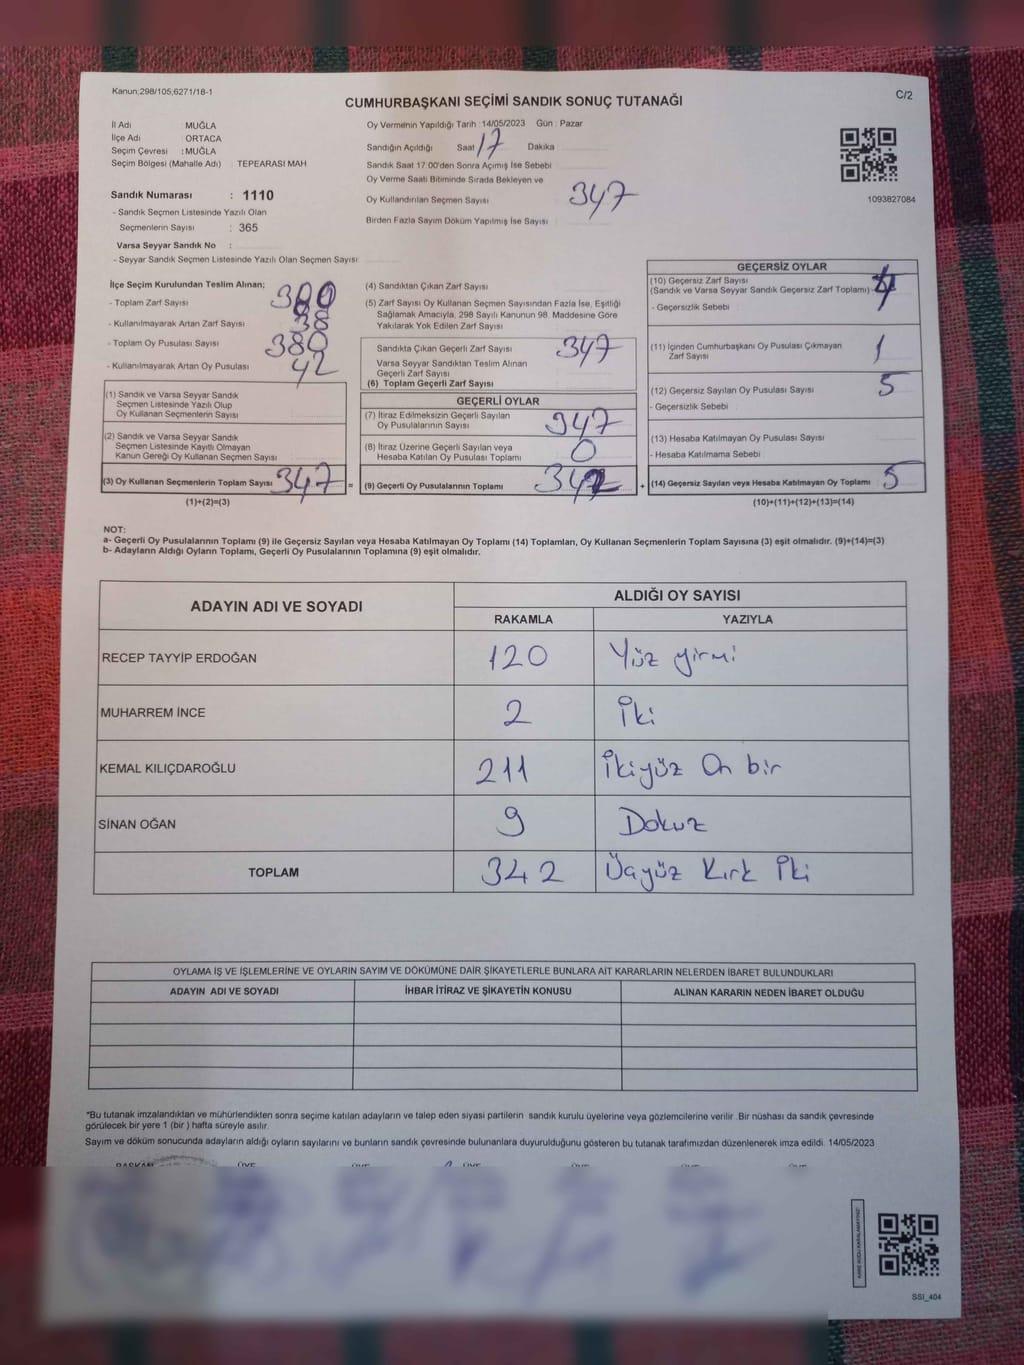 Kanun;298/105;6271/18-1
C/2
CUMHURBAŞKANI SEÇİMİ SANDIK SONUÇ TUTANAĞI
İl Adı MUĞLA
İlçe Adı : ORTACA
Seçim Çevresi : MUĞLA
Seçim Bölgesi (Mahalle Adı) : TEPEARASI MAH
Sandık Numarası : 1110
- Sandık Seçmen Listesinde Yazılı Olan
Seçmenlerin Sayısı : 365
Varsa Seyyar Sandık No :
- Seyyar Sandık Seçmen Listesinde Yazılı Olan Seçmen Sayısı
Oy Vermenin Yapıldığı Tarih : 14/05/2023 Gün : Pazar
Sandığın Açıldığı Saat 17 Dakika
Sandık Saat 17:00'den Sonra Açımış İse Sebebi
Oy Verme Saati Bitiminde Sırada Bekleyen ve
Oy Kullandırılan Seçmen Sayısı 347
Birden Fazla Sayım Döküm Yapılmış İse Sayısı
1093827084
İlçe Seçim Kurulundan Teslim Alınan;
- Toplam Zarf Sayısı
- Kullanılmayarak Artan Zarf Sayısı 38
- Toplam Oy Pusulası Sayısı 380
- Kullanılmayarak Artan Oy Pusulası 42
(1) Sandık ve Varsa Seyyar Sandık
Seçmen Listesinde Yazılı Olup
Oy Kullanan Seçmenlerin Sayısı
(2) Sandık ve Varsa Seyyar Sandık
Seçmen Listesinde Kayıtlı Olmayan
Kanun Gereği Oy Kullanan Seçmen Sayısı
(3) Oy Kullanan Seçmenlerin Toplam Sayısı 347 =
(1)+(2)=(3)
(4) Sandıktan Çıkan Zarf Sayısı
(5) Zarf Sayısı Oy Kullanan Seçmen Sayısından Fazla İse, Eşitliği
Sağlamak Amacıyla, 298 Sayılı Kanunun 98. Maddesine Göre
Yakılarak Yok Edilen Zarf Sayısı
Sandıkta Çıkan Geçerli Zarf Sayısı 347
Varsa Seyyar Sandıktan Teslim Alınan
Geçerli Zarf Sayısı
(6) Toplam Geçerli Zarf Sayısı
GEÇERLİ OYLAR
(7) İtiraz Edilmeksizin Geçerli Sayılan
Oy Pusulalarının Sayısı 347
(8) İtiraz Üzerine Geçerli Sayılan veya
Hesaba Katılan Oy Pusulası Toplamı 0
(9) Geçerli Oy Pusulalarının Toplamı 342 +
GEÇERSİZ OYLAR
(10) Geçersiz Zarf Sayısı
(Sandık ve Varsa Seyyar Sandık Geçersiz Zarf Toplamı)
- Geçersizlik Sebebi
(11) İçinden Cumhurbaşkanı Oy Pusulası Çıkmayan
Zarf Sayısı 1
(12) Geçersiz Sayılan Oy Pusulası Sayısı 5
- Geçersizlik Sebebi
(13) Hesaba Katılmayan Oy Pusulası Sayısı
- Hesaba Katılmama Sebebi
(14) Geçersiz Sayılan veya Hesaba Katılmayan Oy Toplamı 5
(10)+(11)+(12)+(13)=(14)
NOT:
a- Geçerli Oy Pusulalarının Toplamı (9) ile Geçersiz Sayılan veya Hesaba Katılmayan Oy Toplamı (14) Toplamları, Oy Kullanan Seçmenlerin Toplam Sayısına (3) eşit olmalıdır. (9)+(14)=(3)
b- Adayların Aldığı Oyların Toplamı, Geçerli Oy Pusulalarının Toplamına (9) eşit olmalıdır.
ADAYIN ADI VE SOYADI
ALDIĞI OY SAYISI
RAKAMLA YAZIYLA
RECEP TAYYİP ERDOĞAN 120 Yüz yirmi
MUHARREM İNCE 2 İki
KEMAL KILIÇDAROĞLU 211 İkiyüz On bir
SİNAN OĞAN 9 Dokuz
TOPLAM 342 Üçyüz Kırk İki
OYLAMA İŞ VE İŞLEMLERİNE VE OYLARIN SAYIM VE DÖKÜMÜNE DAİR ŞİKAYETLERLE BUNLARA AİT KARARLARIN NELERDEN İBARET BULUNDUKLARI
ADAYIN ADI VE SOYADI İHBAR İTİRAZ VE ŞİKAYETİN KONUSU ALINAN KARARIN NEDEN İBARET OLDUĞU
*Bu tutanak imzalandıktan ve mühürlendikten sonra seçime katılan adayların ve talep eden siyasi partilerin sandık kurulu üyelerine veya gözlemcilerine verilir. Bir nüshası da sandık çevresinde
görülecek bir yere 1 (bir) hafta süreyle asılır.
Sayım ve döküm sonucunda adayların aldığı oyların sayılarını ve bunların sandık çevresinde bulunanlara duyurulduğunu gösteren bu tutanak tarafımızdan düzenlenerek imza edildi. 14/05/2023
SSI_404